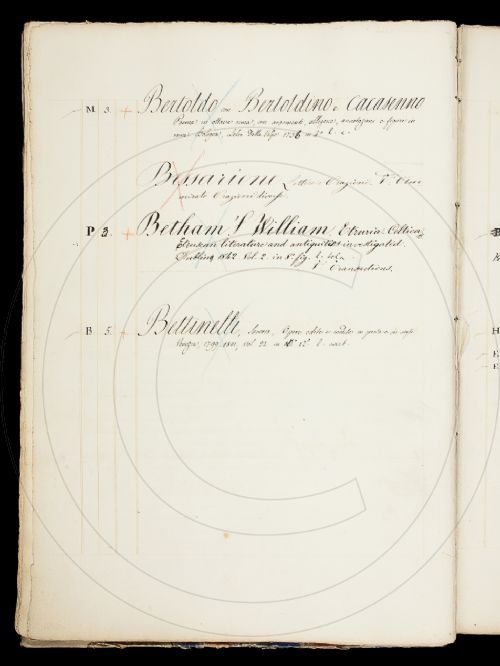 M 3. Bertoldo con Bertoldino e Cacasenno
Poema in ottava rima, con argomenti, allegorie, annotazioni e figure in
rame. Bologna, Lelio Della Volpe 1736 in 4° l. c.
Bessarione Lettere e Orazioni V. Ora
Orazioni diverse.
P 3. Betham S. William, Etruria Celtica
Etruscan literature and antiquities investigated.
Dublino 1842 Vol. 2. in 8° fig. l. tela
V. Transactions.
B 5. Bettinelli, Saverio, Opere edite e inedite in prosa e in versi
Venezia, 1799-1801, vol. 24 in 12° l. cart.
P
H
E
E